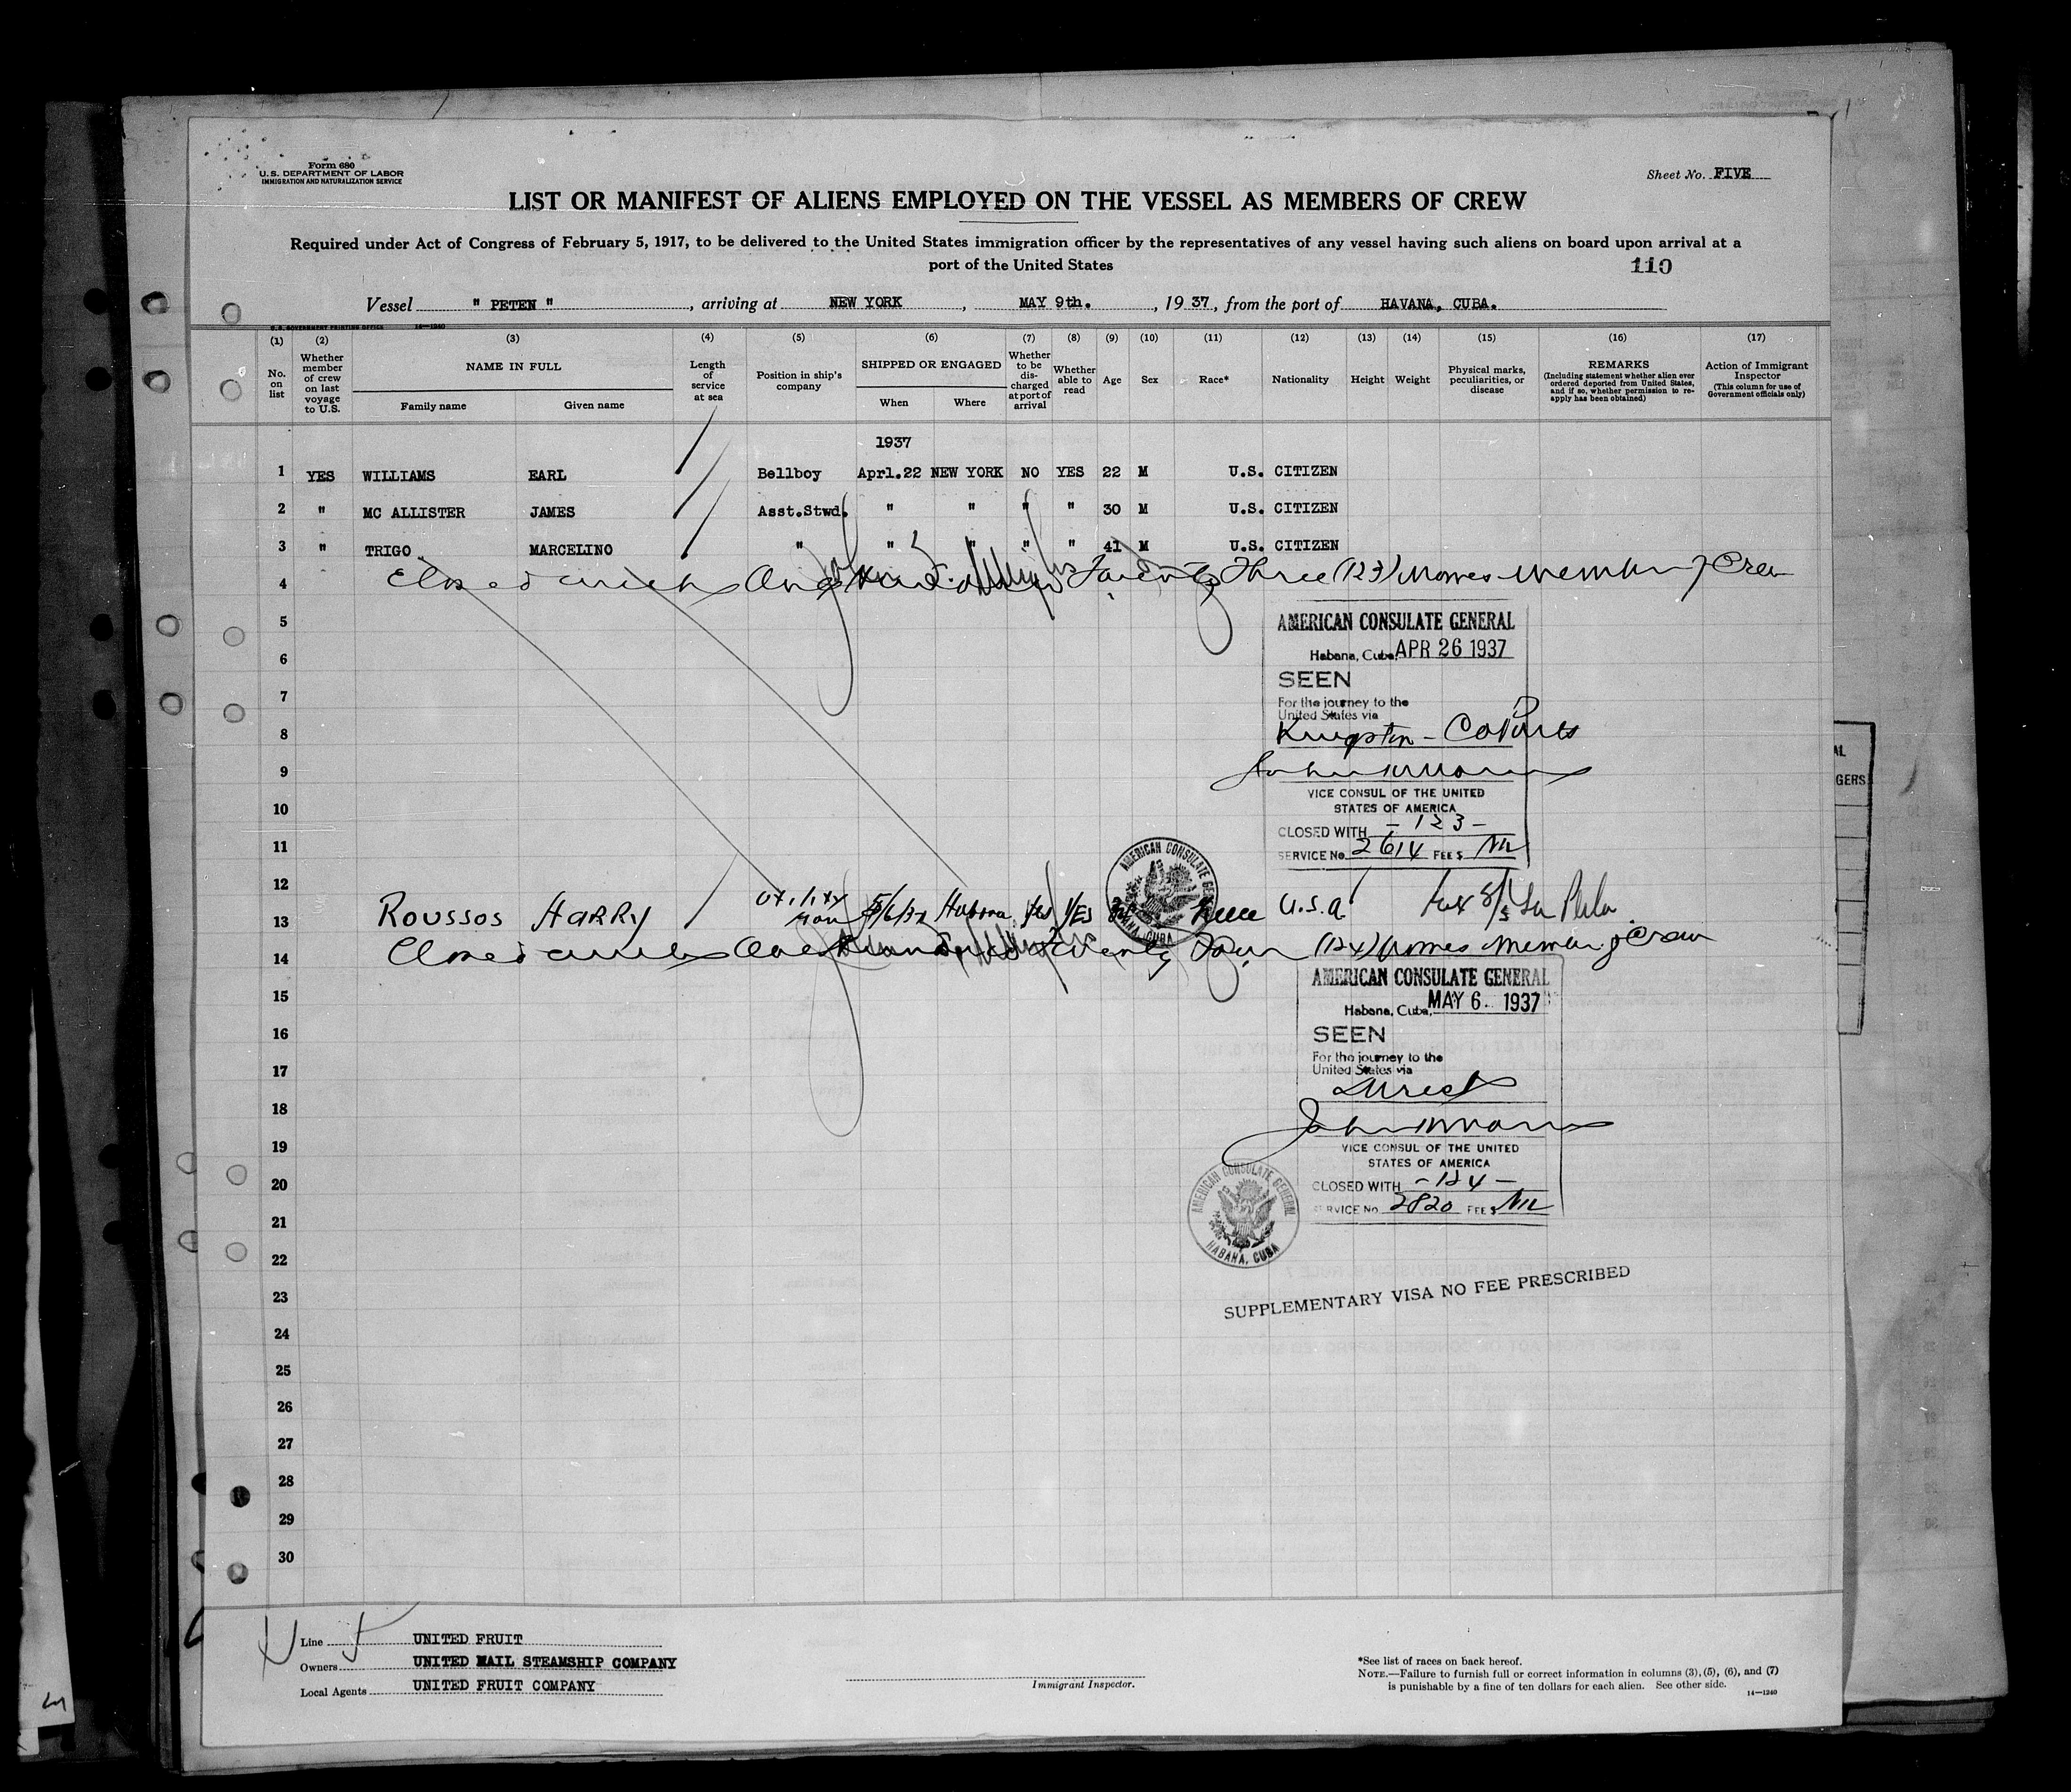 Form 680
U.S. DEPARTMENT OF LABOR
IMMIGRATION AND NATURALIZATION SERVICE
Sheet No. FIVE
LIST OR MANIFEST OF ALIENS EMPLOYED ON THE VESSEL AS MEMBERS OF CREW
Required under Act of Congress of February 5, 1917, to be delivered to the United States immigration officer by the representatives of any vessel having such aliens on board upon arrival at a
port of the United States
110
Vessel " PETEN ", arriving at NEW YORK, MAY 9th., 19 37, from the port of HAVANA, CUBA.
U.S. GOVERNMENT PRINTING OFFICE 14—1240
(1) (2) (3) (4) (5) (6) (7) (8) (9) (10) (11) (12) (13) (14) (15) (16) (17)
No. on list
Whether member of crew on last voyage to U.S.
NAME IN FULL
Family name Given name
Length of service at sea
Position in ship's company
SHIPPED OR ENGAGED
When Where
Whether to be discharged at port of arrival
Whether able to read
Age
Sex
Race*
Nationality
Height
Weight
Physical marks, peculiarities, or disease
REMARKS
(Including statement whether alien ever ordered deported from United States, and if so, whether permission to reapply has been obtained)
Action of Immigrant Inspector
(This column for use of Government officials only)
1937
1 YES WILLIAMS EARL Bellboy Aprl.22 NEW YORK NO YES 22 M U.S. CITIZEN
2 " MC ALLISTER JAMES Asst.Stwd. " " " " 30 M U.S. CITIZEN
3 " TRIGO MARCELINO " " " " " 41 M U.S. CITIZEN
4 Closed with One Hundred Twenty Three (123) names members of Crew
5
AMERICAN CONSULATE GENERAL
Habana, Cuba, APR 26 1937
6
SEEN
7
For the journey to the
United States via
8
Kingston -
9
10
VICE CONSUL OF THE UNITED
STATES OF AMERICA
CLOSED WITH - 123 -
11
SERVICE No. 2614 FEE $ Nil
AMERICAN CONSULATE GENERAL
HABANA, CUBA
12
13 ROUSSOS HARRY Utility Man 5/6/37 Habana Yes YES U.S.A.
14 Closed with One Hundred Twenty Four (124) names members of Crew
AMERICAN CONSULATE GENERAL
15
Habana, Cuba, MAY 6. 1937
16
SEEN
17
For the journey to the
United States via
Direct
18
19
VICE CONSUL OF THE UNITED
STATES OF AMERICA
20
CLOSED WITH - 124 -
SERVICE No. 2820 FEE $ Nil
21
AMERICAN CONSULATE GENERAL
HABANA, CUBA
22
23
SUPPLEMENTARY VISA NO FEE PRESCRIBED
24
25
26
27
28
29
30
Line UNITED FRUIT
Owners UNITED MAIL STEAMSHIP COMPANY
Local Agents UNITED FRUIT COMPANY
Immigrant Inspector.
*See list of races on back hereof.
NOTE.—Failure to furnish full or correct information in columns (3), (5), (6), and (7)
is punishable by a fine of ten dollars for each alien. See other side.
14—1240
AL
GERS